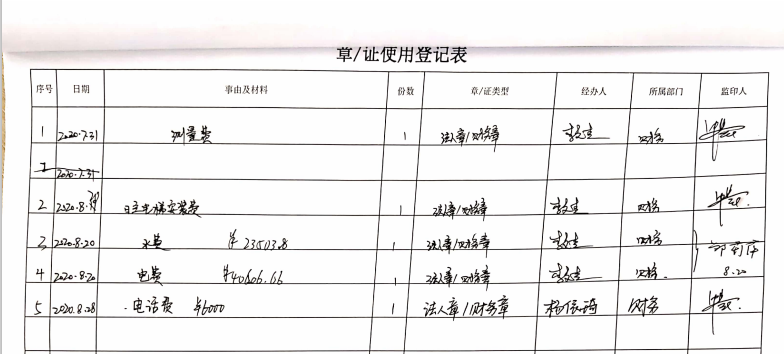 章/证使用登记表
序号 日期 事由及材料 份数 章/证类型 经办人 所属部门 监印人
1 2020.7.31 测量费 1 法人章/财务章 财务
2020.7.31
2 2020.8. 日立电梯安装费 1 法人章/财务章 财务
3 2020.8.20 水费 ¥23503.8 1 法人章/财务章 财务
4 2020.8.20 电费 ¥40606.66 1 法人章/财务章 财务 8.20
5 2020.8.28 电话费 ¥6000 1 法人章/财务章 财务